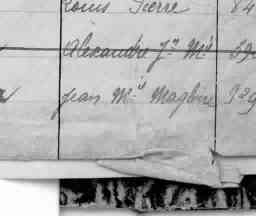 Louis Pierre 84
Alexandre Jn Mie 59
Jean Mie Magloire 929